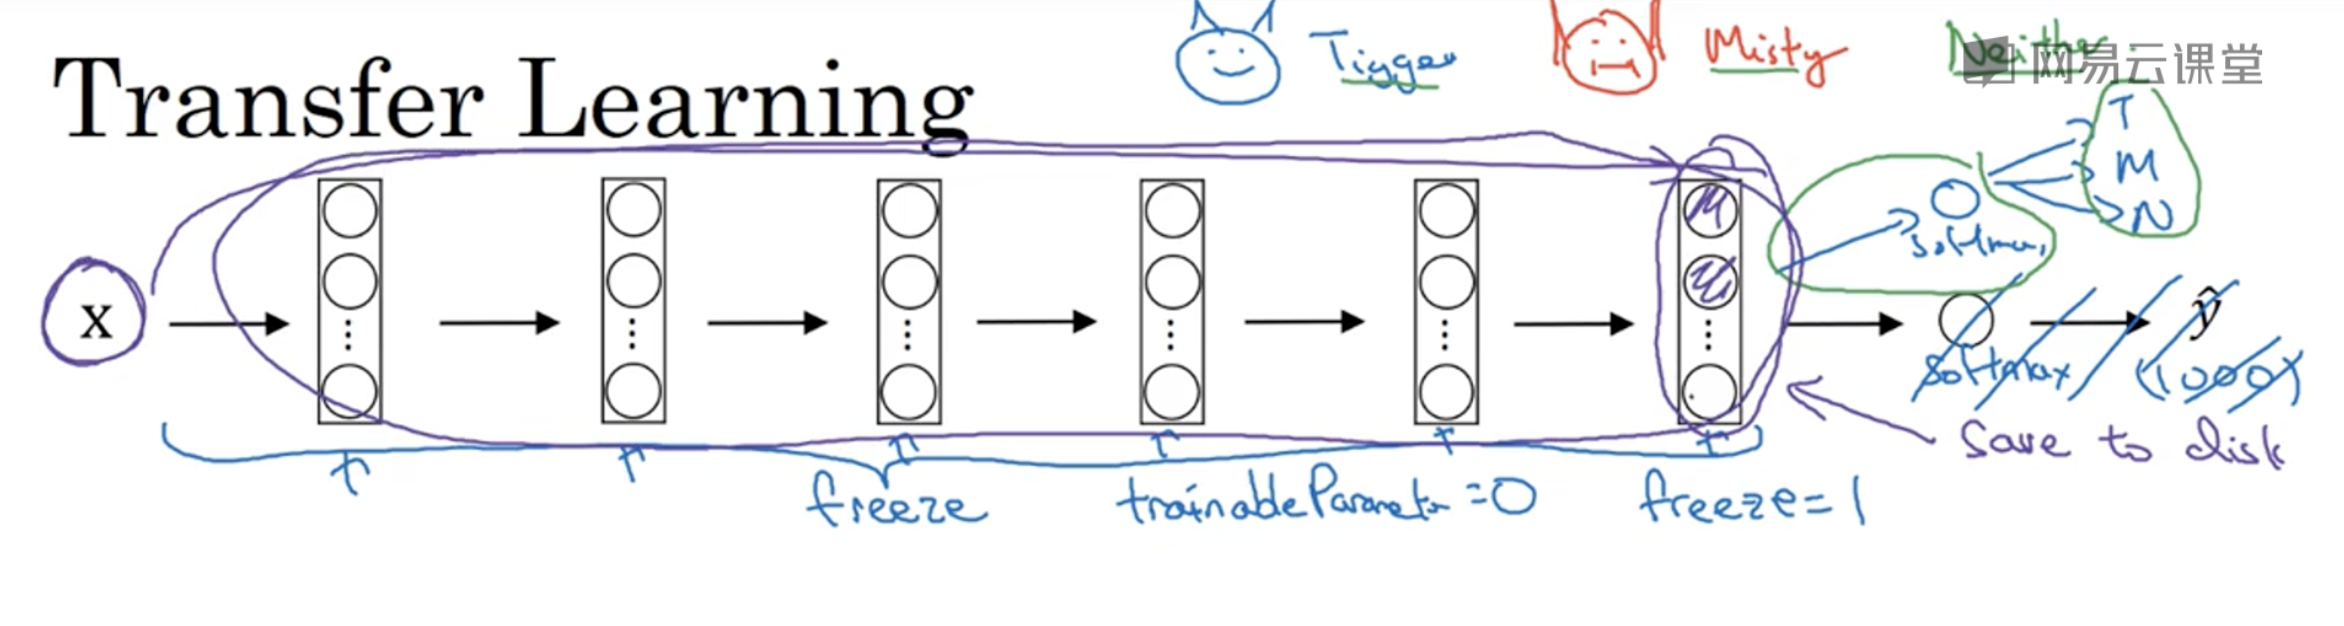 Transfer Learning
Tigger
Misty
Neither
网易云课堂
T
M
N
softmax
x
ŷ
softmax
(1000)
Save to disk
freeze
trainableParameter = 0
freeze = 1